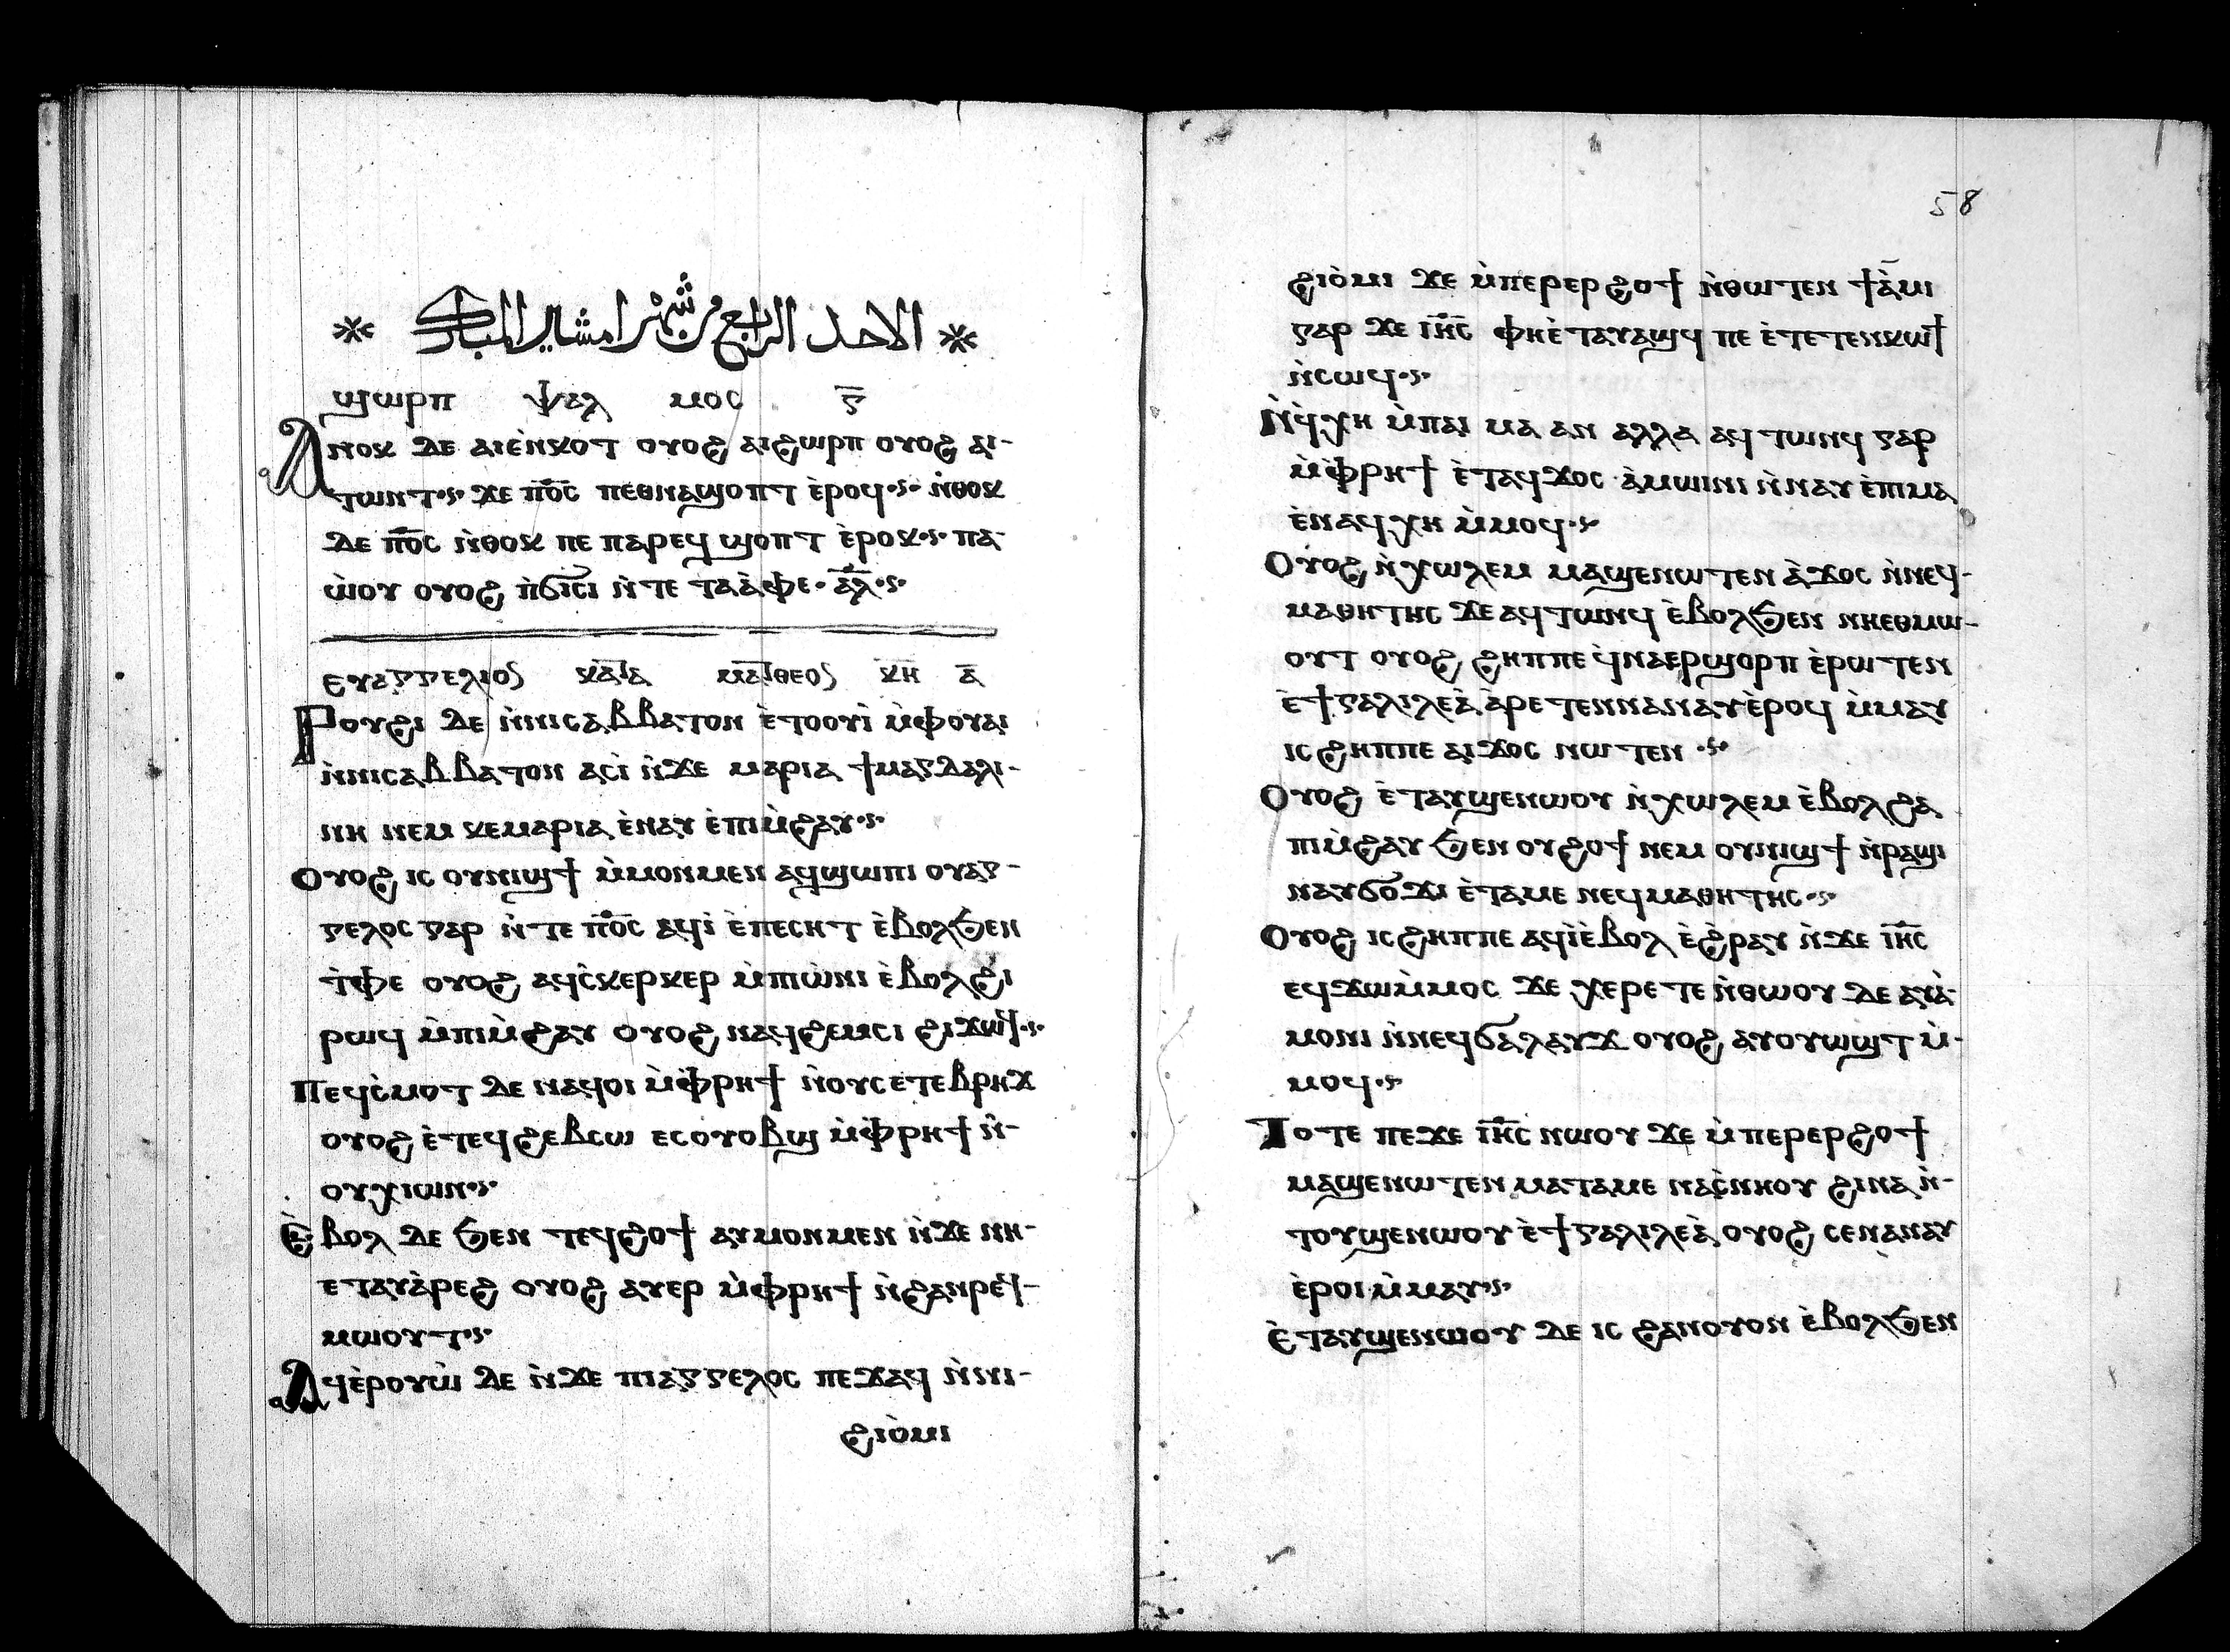 الاحد الرابع من شهر امشير المبارك
ϣⲱⲣⲡ ⲯⲁⲗ ⲙⲟⲥ ⲅ̅
Ⲁⲛⲟⲕ ⲇⲉ ⲁⲓⲉ̀ⲛⲕⲟⲧ ⲟⲩⲟϩ ⲁⲓϩⲱⲣⲡ ⲟⲩⲟϩ ⲁⲓ-
ⲧⲱⲛⲧ ϫⲉ ⲡ̅ⲟ̅ⲥ̅ ⲡⲉⲑⲛⲁϣⲟⲡⲧ ⲉ̀ⲣⲟϥ ⲛ̀ⲑⲟⲕ
ⲇⲉ ⲡ̅ⲟ̅ⲥ̅ ⲛ̀ⲑⲟⲕ ⲡⲉ ⲡⲁⲣⲉϥϣⲟⲡⲧ ⲉ̀ⲣⲟⲕ ⲡⲁ-
ⲱ̀ⲟⲩ ⲟⲩⲟϩ ⲡ̀ϭⲓⲥⲓ ⲛ̀ⲧⲉ ⲧⲁⲁ̀ⲫⲉ ⲁ̅ⲗ̅
ⲉⲩⲁⲅⲅⲉⲗⲓⲟⲥ ⲕⲁⲧⲁ ⲙⲁⲧⲑⲉⲟⲥ ⲕ̅ⲏ̅ ⲁ̅
Ⲣⲟⲩϩⲓ ⲇⲉ ⲛ̀ⲛⲓⲥⲁⲃⲃⲁⲧⲟⲛ ⲉ̀ⲧⲟⲟⲩⲓ̀ ⲙ̀ⲫⲟⲩⲁⲓ
ⲛ̀ⲛⲓⲥⲁⲃⲃⲁⲧⲟⲛ ⲁⲥⲓ̀ ⲛ̀ϫⲉ ⲙⲁⲣⲓⲁ ϯⲙⲁⲅⲇⲁⲗⲓ-
ⲛⲏ ⲛⲉⲙ ⲕⲉⲙⲁⲣⲓⲁ ⲉ̀ⲛⲁⲩ ⲉ̀ⲡⲓⲙ̀ϩⲁⲩ
Ⲟⲩⲟϩ ⲓⲥ ⲟⲩⲛⲓϣϯ ⲙ̀ⲙⲟⲛⲙⲉⲛ ⲁϥϣⲱⲡⲓ ⲟⲩⲁⲅ-
ⲅⲉⲗⲟⲥ ⲅⲁⲣ ⲛ̀ⲧⲉ ⲡ̅ⲟ̅ⲥ̅ ⲁϥⲓ̀ ⲉ̀ⲡⲉⲥⲏⲧ ⲉ̀ⲃⲟⲗϧⲉⲛ
ⲧ̀ⲫⲉ ⲟⲩⲟϩ ⲁϥⲥ̀ⲕⲉⲣⲕⲉⲣ ⲙ̀ⲡⲓⲱ̀ⲛⲓ ⲉ̀ⲃⲟⲗϩⲓ
ⲣⲱϥ ⲙ̀ⲡⲓⲙ̀ϩⲁⲩ ⲟⲩⲟϩ ⲛⲁϥϩⲉⲙⲥⲓ ϩⲓϫⲱϥ
Ⲡⲉϥⲥ̀ⲙⲟⲧ ⲇⲉ ⲛⲁϥⲟⲓ ⲙ̀ⲫ̀ⲣⲏϯ ⲛ̀ⲟⲩⲥⲉⲧⲉⲃⲣⲏϫ
ⲟⲩⲟϩ ⲉ̀ⲧⲉϥϩⲉⲃⲥⲱ ⲉⲥⲟⲩⲟⲃϣ ⲙ̀ⲫ̀ⲣⲏϯ ⲛ̀-
ⲟⲩⲭⲓⲱⲛ
Ⲉ̀ⲃⲟⲗ ⲇⲉ ϧⲉⲛ ⲧⲉϥϩⲟϯ ⲁⲩⲙⲟⲛⲙⲉⲛ ⲛ̀ϫⲉ ⲛⲏ-
ⲉⲧⲁⲩⲁ̀ⲣⲉϩ ⲟⲩⲟϩ ⲁⲩⲉⲣ ⲙ̀ⲫ̀ⲣⲏϯ ⲛ̀ϩⲁⲛⲣⲉϥ-
ⲙⲱⲟⲩⲧ
Ⲁϥⲉ̀ⲣⲟⲩⲱ̀ ⲇⲉ ⲛ̀ϫⲉ ⲡⲓⲁⲅⲅⲉⲗⲟⲥ ⲡⲉϫⲁϥ ⲛ̀ⲛⲓ-
ϩⲓⲟ̀ⲙⲓ
58
ϩⲓⲟ̀ⲙⲓ ϫⲉ ⲙ̀ⲡⲉⲣⲉⲣϩⲟϯ ⲛ̀ⲑⲱⲧⲉⲛ ϯⲁ̀ⲙⲓ
ⲅⲁⲣ ϫⲉ ⲓ̅ⲏ̅ⲥ̅ ⲫⲏⲉ̀ⲧⲁⲩⲁϣϥ ⲡⲉ ⲉ̀ⲧⲉⲧⲉⲛⲕⲱϯ
ⲛ̀ⲥⲱϥ
Ⲛ̀ϥ̀ⲭⲏ ⲙ̀ⲡⲁⲓ ⲙⲁ ⲁⲛ ⲁⲗⲗⲁ ⲁϥⲧⲱⲛϥ ⲅⲁⲣ
ⲙ̀ⲫ̀ⲣⲏϯ ⲉ̀ⲧⲁϥϫⲟⲥ ⲁ̀ⲙⲱⲓⲛⲓ ⲛ̀ⲛⲁⲩ ⲉ̀ⲡⲓⲙⲁ
ⲉ̀ⲛⲁϥⲭⲏ ⲙ̀ⲙⲟϥ
Ⲟⲩⲟϩ ⲛ̀ⲭⲱⲗⲉⲙ ⲙⲁϣⲉⲛⲱⲧⲉⲛ ⲁ̀ϫⲟⲥ ⲛ̀ⲛⲉϥ-
ⲙⲁⲑⲏⲧⲏⲥ ϫⲉ ⲁϥⲧⲱⲛϥ ⲉ̀ⲃⲟⲗϧⲉⲛ ⲛⲏⲉⲑⲙⲱ-
ⲟⲩⲧ ⲟⲩⲟϩ ϩⲏⲡⲡⲉ ϥ̀ⲛⲁⲉⲣϣⲟⲣⲡ ⲉ̀ⲣⲱⲧⲉⲛ
ⲉ̀ϯⲅⲁⲗⲓⲗⲉⲁ̀ ⲁ̀ⲣⲉⲧⲉⲛⲛⲁⲛⲁⲩⲉ̀ⲣⲟϥ ⲙ̀ⲙⲁⲩ
ⲓⲥ ϩⲏⲡⲡⲉ ⲁⲓϫⲟⲥ ⲛⲱⲧⲉⲛ
Ⲟⲩⲟϩ ⲉ̀ⲧⲁⲩϣⲉⲛⲱⲟⲩ ⲛ̀ⲭⲱⲗⲉⲙ ⲉ̀ⲃⲟⲗϩⲁ
ⲡⲓⲙ̀ϩⲁⲩ ϧⲉⲛ ⲟⲩϩⲟϯ ⲛⲉⲙ ⲟⲩⲛⲓϣϯ ⲛ̀ⲣⲁϣⲓ
ⲛⲁⲩϭⲟϫⲓ ⲉ̀ⲧⲁⲙⲉ ⲛⲉϥⲙⲁⲑⲏⲧⲏⲥ
Ⲟⲩⲟϩ ⲓⲥ ϩⲏⲡⲡⲉ ⲁϥⲓ̀ⲉ̀ⲃⲟⲗ ⲉ̀ϩ̀ⲣⲁⲩ ⲛ̀ϫⲉ ⲓ̅ⲏ̅ⲥ̅
ⲉϥϫⲱⲙ̀ⲙⲟⲥ ϫⲉ ⲭⲉⲣⲉⲧⲉ ⲛ̀ⲑⲱⲟⲩ ⲇⲉ ⲁⲩⲁ̀-
ⲙⲟⲛⲓ ⲛ̀ⲛⲉϥϭⲁⲗⲁⲩϫ ⲟⲩⲟϩ ⲁⲩⲟⲩⲱϣⲧ ⲙ̀-
ⲙⲟϥ
Ⲧⲟⲧⲉ ⲡⲉϫⲉ ⲓ̅ⲏ̅ⲥ̅ ⲛⲱⲟⲩ ϫⲉ ⲙ̀ⲡⲉⲣⲉⲣϩⲟϯ
ⲙⲁϣⲉⲛⲱⲧⲉⲛ ⲙⲁⲧⲁⲙⲉ ⲛⲁⲥ̀ⲛⲏⲟⲩ ϩⲓⲛⲁ ⲛ̀-
ⲧⲟⲩϣⲉⲛⲱⲟⲩ ⲉ̀ϯⲅⲁⲗⲓⲗⲉⲁ̀ ⲟⲩⲟϩ ⲥⲉⲛⲁⲛⲁⲩ
ⲉ̀ⲣⲟⲓ ⲙ̀ⲙⲁⲩ
Ⲉ̀ⲧⲁⲩϣⲉⲛⲱⲟⲩ ⲇⲉ ⲓⲥ ϩⲁⲛⲟⲩⲟⲛ ⲉ̀ⲃⲟⲗϧⲉⲛ